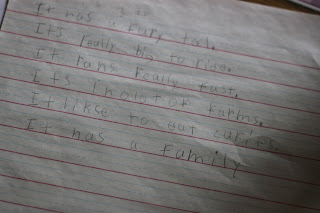 It has a fury tail.
Its really big to ride.
It runs really fast.
Its in a lot of farms.
It likse to eat carits.
It has a family